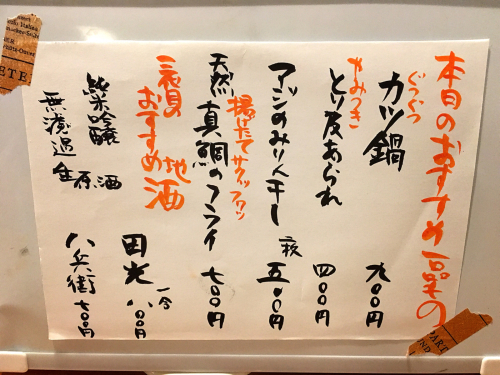 本日のおすすめ一品もの
ぐつぐつ
カツ鍋 九〇〇円
やみつき
とり皮あられ 四〇〇円
アジのみりん干し 五〇〇円
揚げたてサクッフワッ
天然真鯛のフライ 七〇〇円
おすすめ地酒
純米吟醸 田光 一合 八〇〇円
無濾過生原酒 八兵衛 七〇〇円
ETE
PART